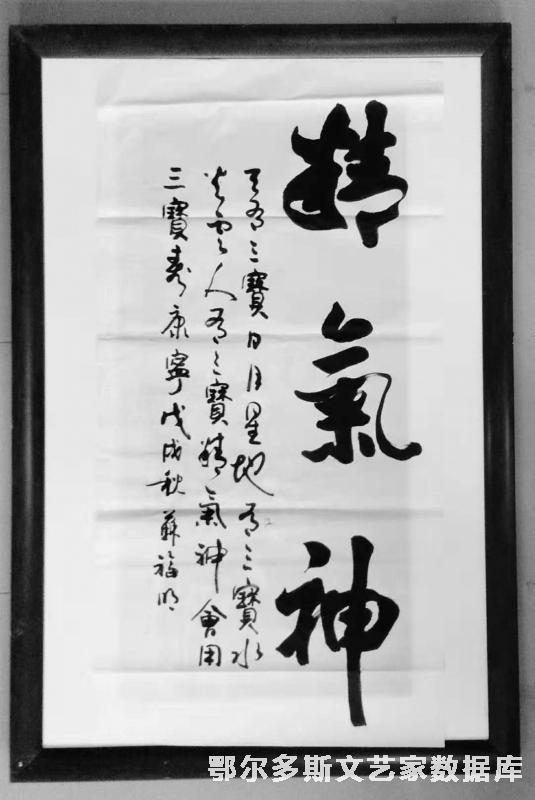 精氣神
天有三寶日月星地有三寶水
火人有三寶精氣神會用
三寶壽康寧戊戌秋福明
鄂尔多斯文艺家数据库